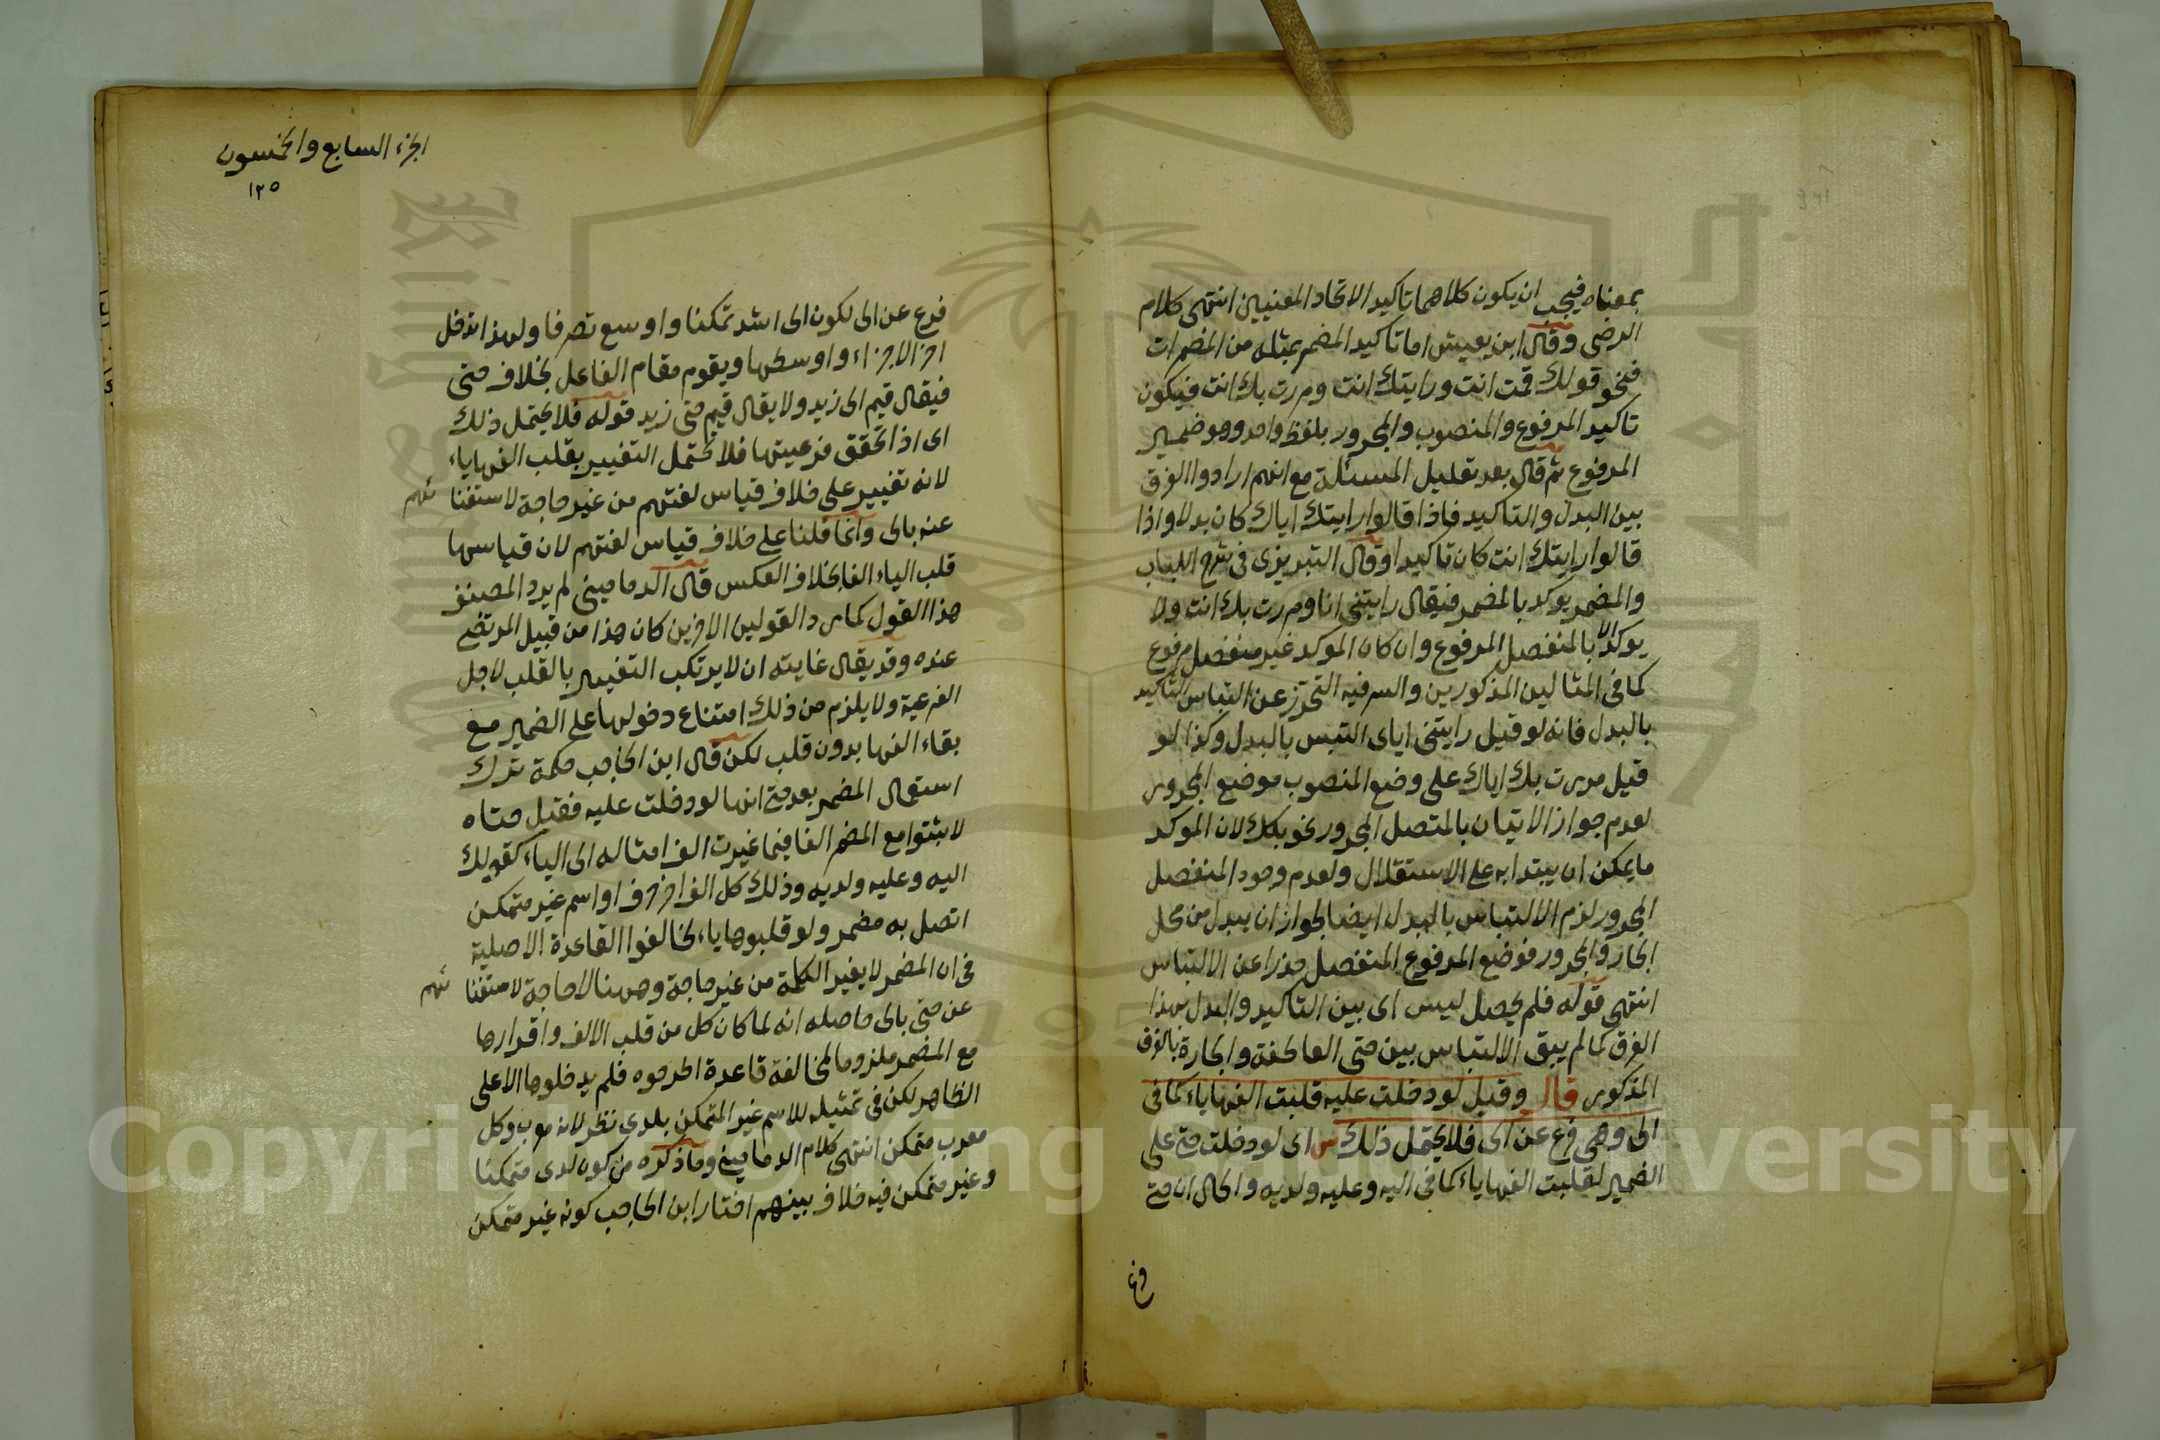 بمعناه فيجب ان يكون كلاهما تاكيدا لاتحاد المعنيين انتهى كلام
الرضى وقال ابن يعيش اما تاكيد المضمر بمثله من المضمرات
فنحو قولك قمت انت ورايتك انت ومررت بك انت فيكون
تاكيد المرفوع والمنصوب والمجرور بلفظ واحد وهو ضمير
المرفوع ثم قال بعد تعليل المسئلة مع انهم ارادوا الفرق
بين البدل والتاكيد فاذا قالوا رايتك اياك كان بدلا واذا
قالوا رايتك انت كان تاكيدا وقال التبريزى فى شرح اللباب
والمضمر يوكد بالمضمر فيقال رايتنى انا ومررت بك انت ولا
يوكد الا بالمنفصل المرفوع وان كان الموكد غير منفصل مرفوع
كما فى المثالين المذكورين والسر فيه التحرز عن التباس التاكيد
بالبدل فانه لو قيل رايتنى اياى التبس بالبدل وكذا لو
قيل مررت بك اياك على وضع المنصوب موضع المجرور
لعدم جواز الاتيان بالمتصل المجرور نحو بكك لان الموكد
ما يمكن ان يبتدا به على الاستقلال ولعدم وجود المنفصل
المجرور لزم الالتباس بالبدل ايضا لجواز ان يبدل من محل
الجار والمجرور فوضع المرفوع المنفصل حذرا عن الالتباس
انتهى قوله فلم يحصل لبس اى بين التاكيد والبدل بهذا
الفرق كما لم يبق الالتباس بين حتى العاطفة والجارة بالفرق
المذكور قال وقيل لو دخلت عليه قلبت الفها ياء كما فى
الى وهى فرع عن الى فلا يحتمل ذلك س اى لو دخلت حتى على
الضمير لقلبت الفها ياء كما فى اليه وعليه ولديه والحال ان حتى
فرع
الجزء السابع والخمسون
١٢٥
فرع عن الى لكون الى اشد تمكنا واوسع تصرفا ولهذا تدخل
اخر الاجزاء واوسطها ويقوم مقام الفاعل بخلاف حتى
فيقال قيم الى زيد ولا يقال قيم حتى زيد قوله فلا يحتمل ذلك
اى اذا تحقق فرعيتها فلا تحتمل التغيير بقلب الفها ياء
لانه تغيير على خلاف قياس لغتهم من غير حاجة لاستغنائهم
عنه بالى وانما قلنا على خلاف قياس لغتهم لان قياسها
قلب الياء الفا بخلاف العكس قال الدمامينى لم يرد المصنف
هذا القول كما رد القولين الاخرين كان هذا من قبيل المرتضى
عنده وقد يقال غايته ان لا يرتكب التغيير بالقلب لاجل
الفرعية ولا يلزم من ذلك امتناع دخولها على الضمير مع
بقاء الفها بدون قلب لكن قال ابن الحاجب حكمة ترك
استعمال المضمر بعد حتى انها لو دخلت عليه فقيل حتاه
لاثبتوا مع المضمر الفا فيما غيرت الف امثاله الى الياء كقولك
اليه وعليه ولديه وذلك كل الف اخر حرف او اسم غير متمكن
اتصل به مضمر ولو قلبوها ياء لخالفوا القاعدة الاصلية
فى ان المضمر لا يغير الكلمة من غير حاجة وههنا لا حاجة لاستغنائهم
عن حتى بالى حاصله انه لما كان كل من قلب الالف واقرارها
مع المضمر ملزوما لمخالفة قاعدة اطرحوه فلم يدخلوها الا على
الظاهر لكن فى تمثيله للاسم غير المتمكن بلدى نظر لانه معرب وكل
معرب متمكن انتهى كلام الدمامينى وما ذكره من كون لدى متمكنا
وغير متمكن فيه خلاف بينهم اختار ابن الحاجب كونه غير متمكن